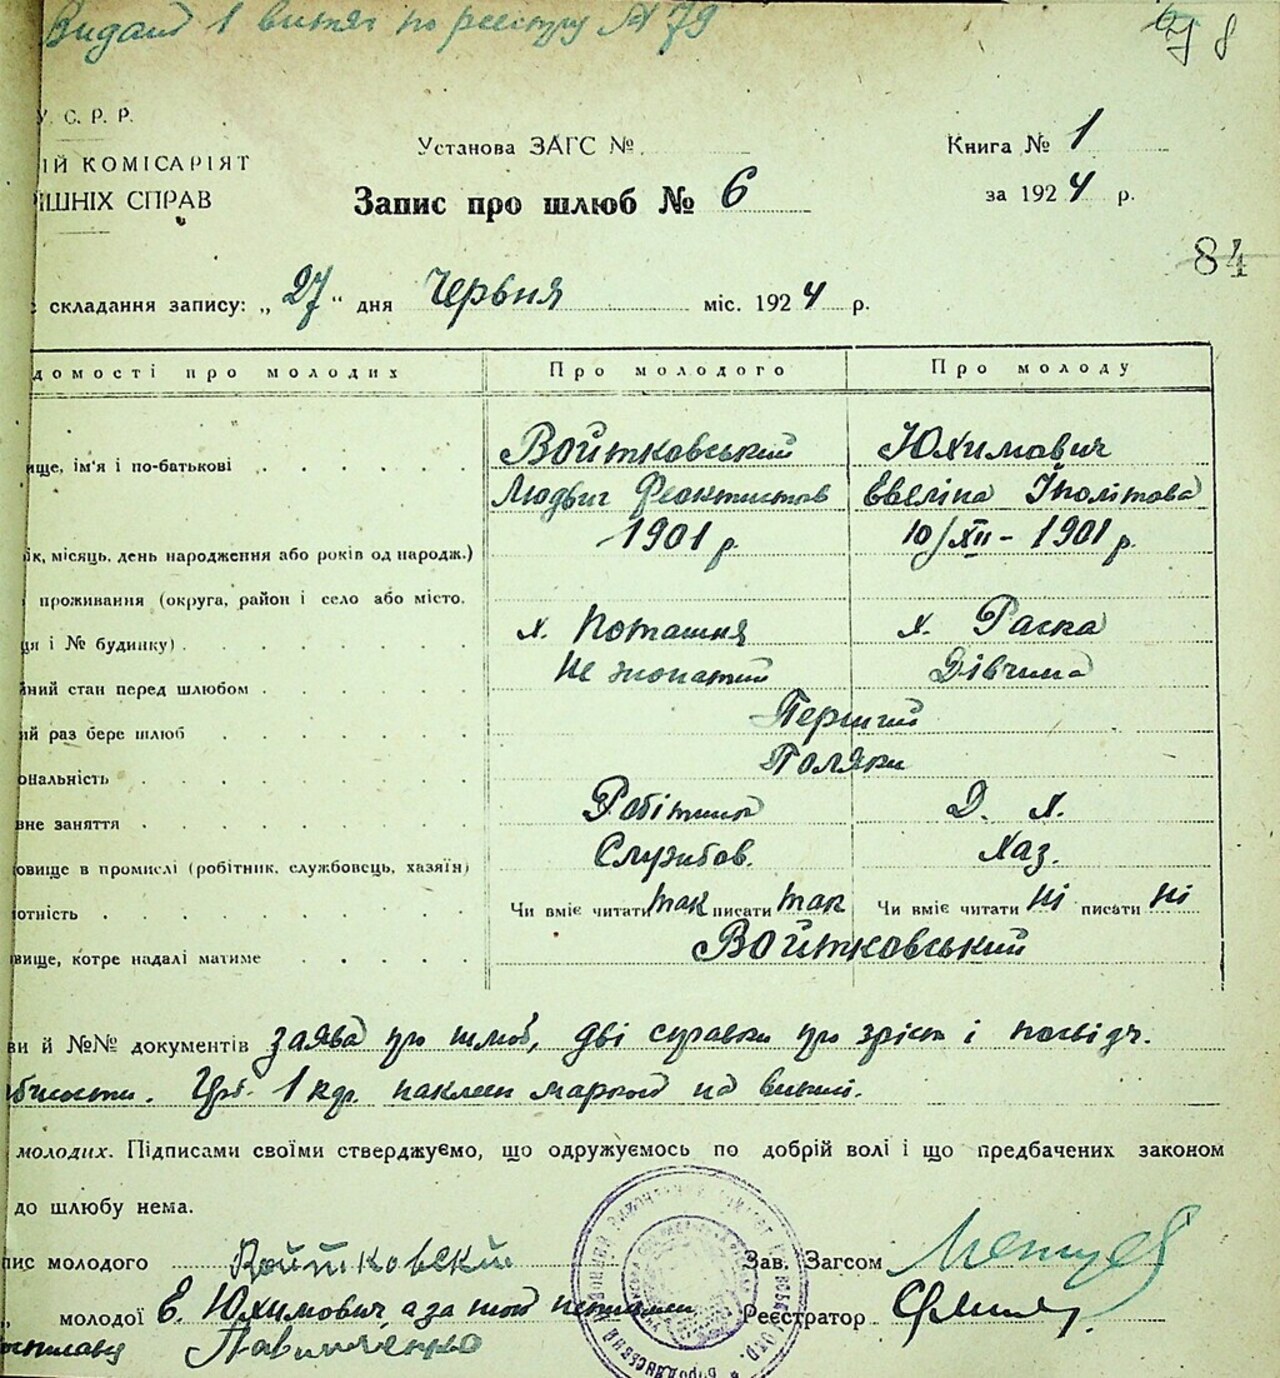 Видано 1 витяг по реєстру № 79
8
У. С. Р. Р.
ІЙ КОМІСАРІЯТ
ІШНІХ СПРАВ
Установа ЗАГС №
Запис про шлюб № 6
Книга № 1
за 1924 р.
84
складання запису: „27“ дня Червня міс. 1924 р.
домості про молодих Про молодого Про молоду
ище, ім'я і по-батькові Войтковський Юхимович
Людвиг Феоктистов Евеліна Іполітова
ік, місяць, день народження або років од народж.) 1901 р. 10/XII - 1901 р.
проживання (округа, район і село або місто.
ця і № будинку) х. Поташня х. Раска
йний стан перед шлюбом Не жонатий Дівчина
ий раз бере шлюб Перший
ональність Поляки
вне заняття Робітник Д. Х.
овище в промислі (робітник, службовець, хазяїн) Службов. Хаз.
отність Чи вміє читати так писати так Чи вміє читати ні писати ні
вище, котре надалі матиме Войтковський
ви й №№ документів заява про шлюб, дві справки про зріст і посвідч.
1 кр. наклеен маркой на
молодих. Підписами своїми стверджуємо, що одружуємось по добрій волі і що предбачених законом
до шлюбу нема.
пис молодого Войтковскій Зав. Загсом
„ молодої Е. Юхимович, а за Реєстратор
Павличенко